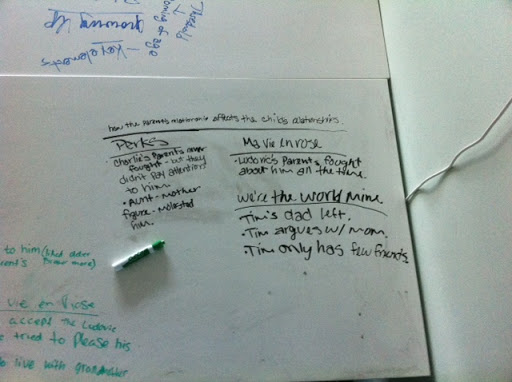 Threshold
↓
coming of age
growing up
- Key elements
how the parent's relationship affects the child's relationships.
Perks
• Charlie's Parents never
fought - but they
didn't pay attention
to him
• Aunt - mother
figure - molested
him.
Ma vie en rose
• Ludovic's Parents fought
about him all the time.
we're the world mine
• Tim's dad left.
• Tim argues w/ mom.
• Tim only has few friends.
to him (liked older
more)
vie en Rose
accept the Ludovic
tried to please his
to live with grandmother